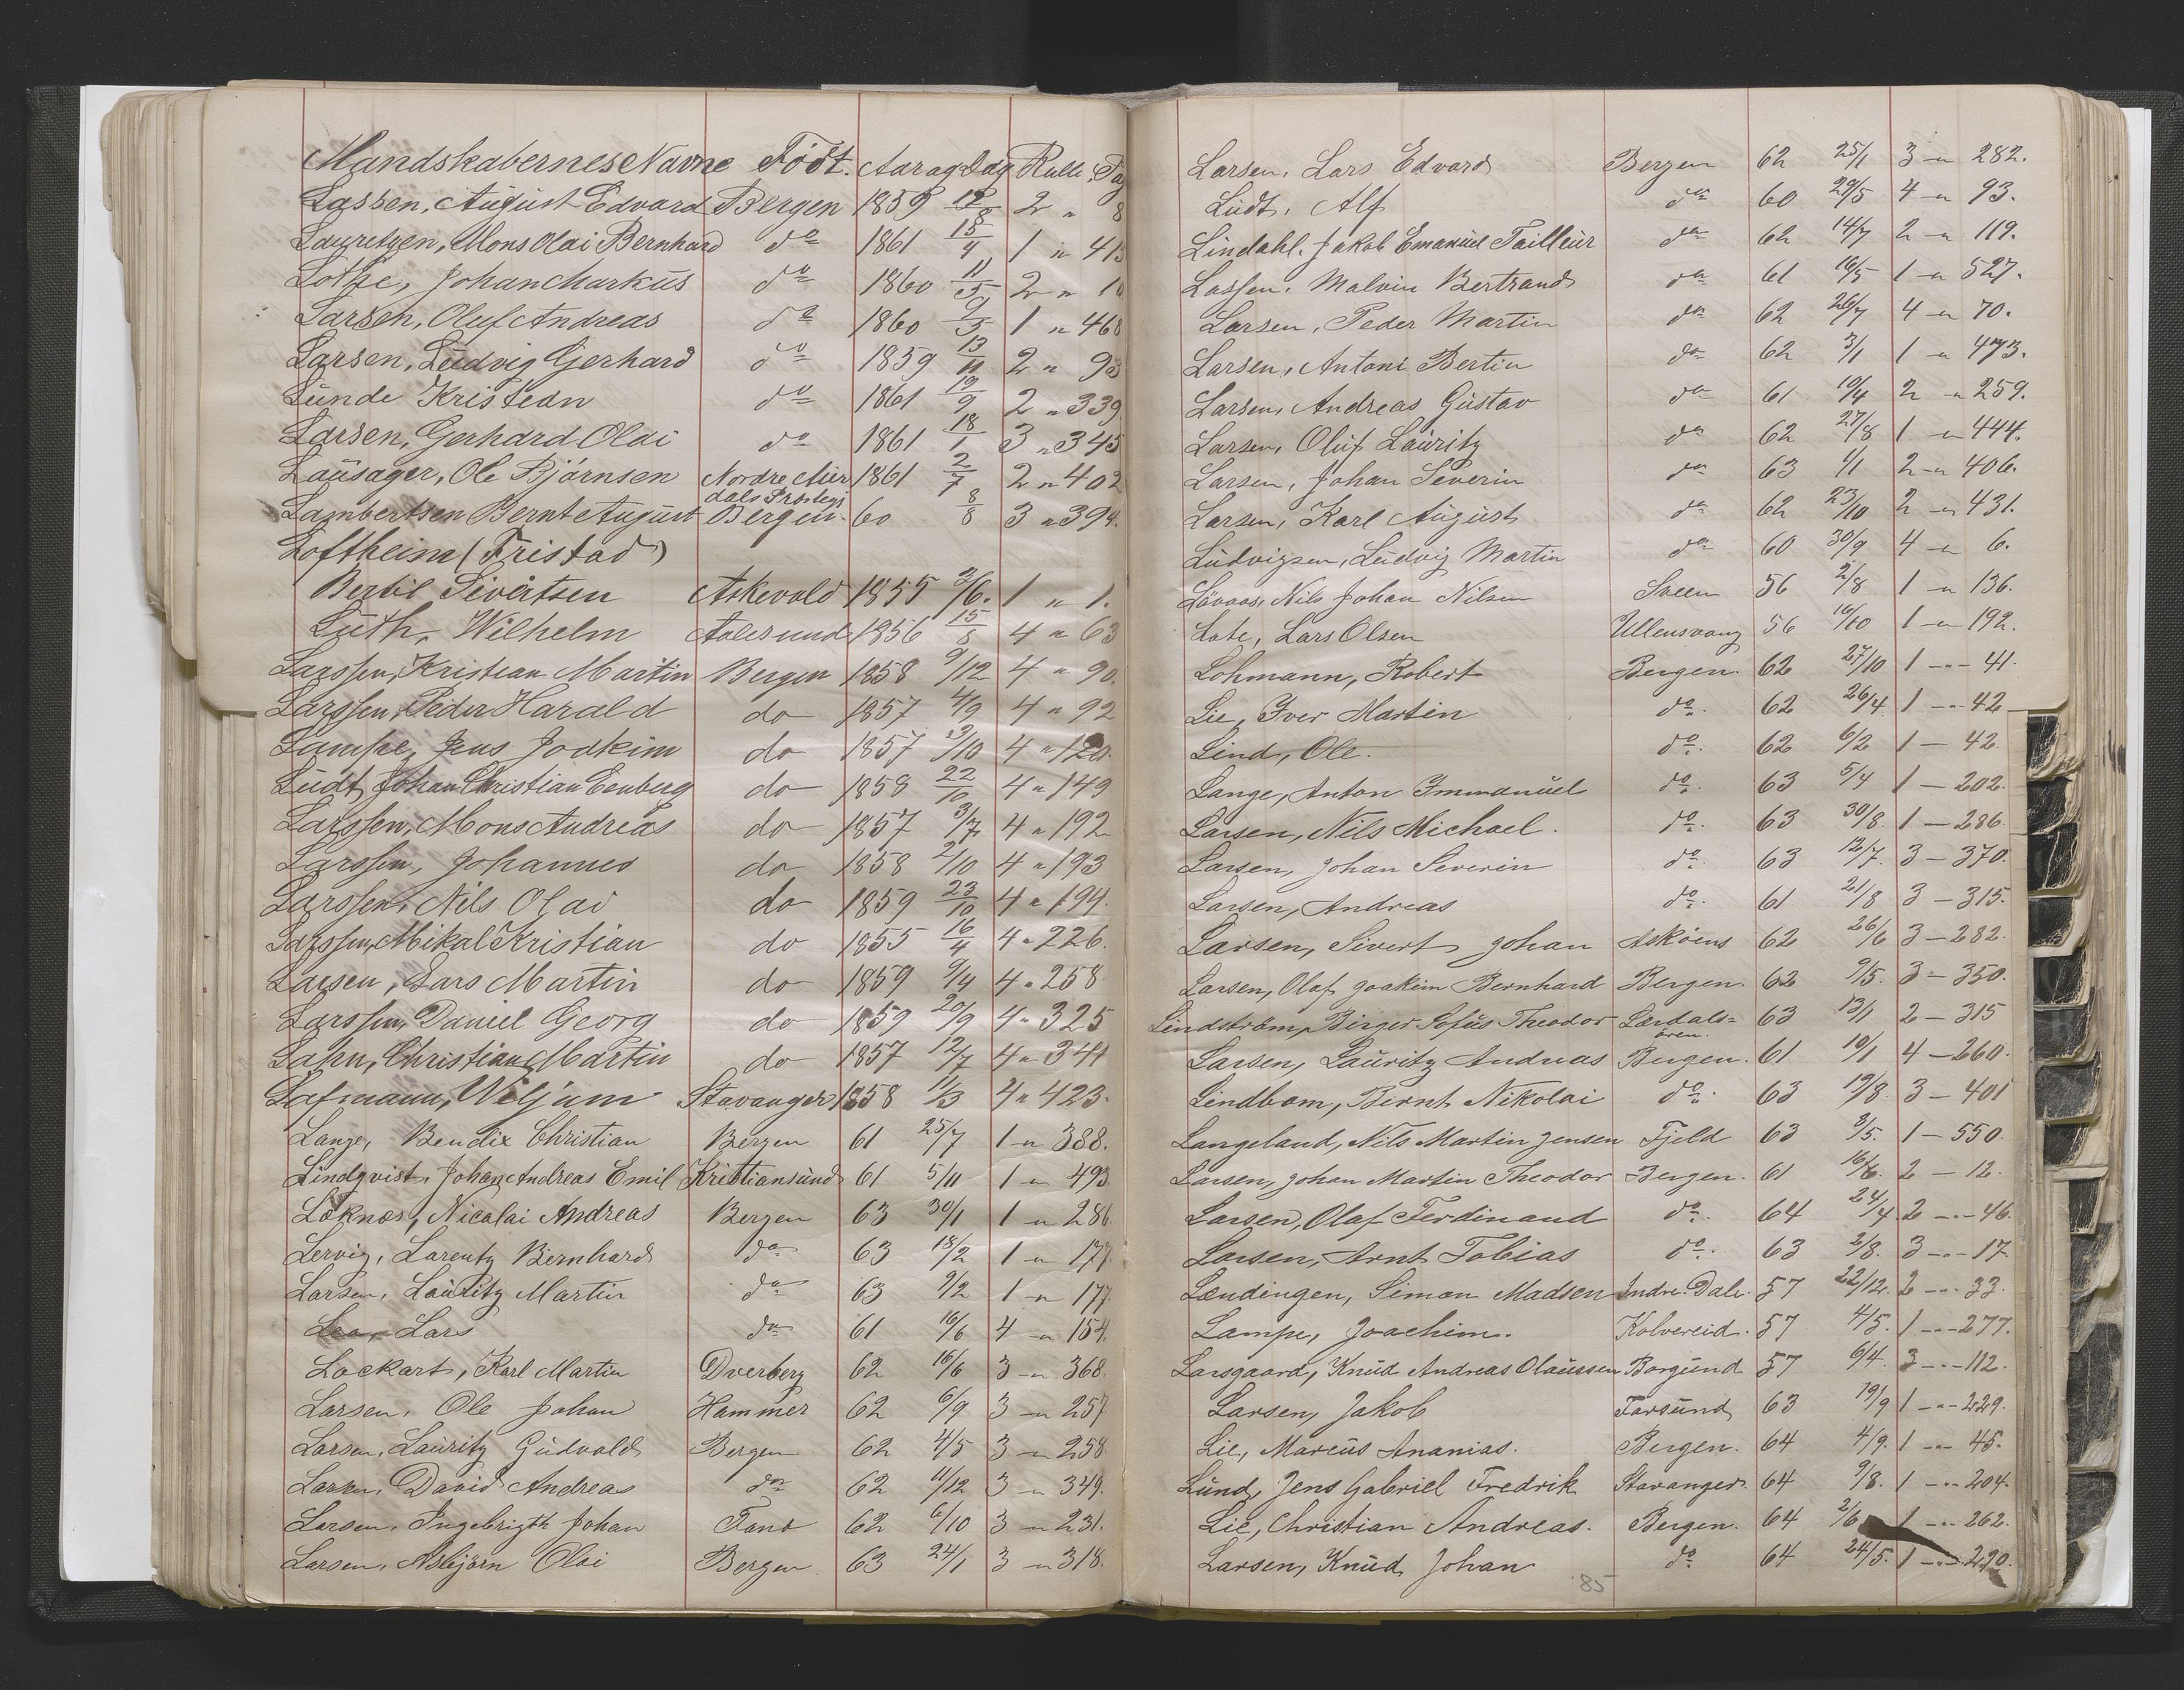 Mandskabernes Navne Födt. Aar og Dag Rulle Pag
Lassen, August Edvard Bergen 1859 12/8 2 " 8
Lauretzen, Mons Olai Bernhard do 1861 15/4 1 " 415
Lothe, Johan Markus do 1860 11/5 2 " 10
Larsen, Oluf Andreas do 1860 9/3 1 " 468
Larsen, Ludvig Gerhard do 1859 13/11 2 " 93
Lunde Kristean do 1861 19/9 2 " 339
Larsen, Gerhard Olai do 1861 18/1 3 " 345
Lausager, Ole Bjørnsen Nordre Aur 1861 2/7 2 " 402
dals Prstegj
Lambertsen Bernt August Bergen 60 8/8 3 " 394.
Loftheim (Fristad)
Bertil Sivertsen Askevold 1855 2/6. 1 " 1.
Luth, Wilhelm Aalesund 1856 15/8 4 " 63
Larssen, Kristean Martin Bergen 1858 9/12 4 " 90.
Larssen, Peder Harald do 1857 4/9 4 " 92
Lampe, Jens Joakim do 1857 3/10 4 "
Ludt, Johan Christian Eenberg do 1858 22/10 4 " 149
Larssen, Mons Andreas do 1857 3/7 4 " 192
Larssen, Johannes do 1858 2/10 4 " 193
Larssen, Nils Olai do 1859 23/10 4 " 194.
Larssen, Mikal Kristian do 1855 16/4 4 " 226.
Larsen, Lars Martin do 1859 9/4 4 " 258
Larssen, Daniel Georg do 1859 20/9 4 " 325
Lahn, Christian Martin do 1857 12/7 4 " 341
Lafmann, Wiljum Stavanger 1858 11/3 4 " 423.
Lange, Bendix Christian Bergen 61 25/7 1 " 388.
Lindqvist, Johan Andreas Emil Kristiansund 61 5/11 1 " 493
Løknæs, Nicolai Andreas Bergen 63 30/1 1 " 286
Lervig, Larentz Bernhard do 63 18/2 1 " 177.
Larsen, Lauritz Martin do 63 9/2 1 " 177
Lea, Lars do 61 16/6 4 " 154.
Lockart, Karl Martin Dverberg 62 16/6 3 " 368.
Larsen, Ole Johan Hammer 62 6/9 3 " 257
Larsen, Lauritz Gudvald Bergen 62 4/5 3 " 258
Larsen, David Andreas do 62 11/12 3 " 349.
Larsen, Ingebrigth Johan Fane 62 6/10 3 " 231.
Larsen, Asbjørn Olai Bergen 63 24/1 3 " 318.
Larsen, Lars Edvard Bergen 62 25/1 3 " 282.
Ludt, Alf do 60 29/5 4 " 93.
Lindahl, Jakob Emanuel Tailleur do 62 14/7 2 " 119.
Lassen, Malvin Bertrand do 61 16/5 1 " 527.
Larsen, Peder Martin do 62 26/7 4 " 70.
Larsen, Antoni Bertin do 62 3/1 1 " 473.
Larsen, Andreas Gustav do 61 10/4 2 " 259.
Larsen, Oluf Lauritz do 62 27/8 1 " 444.
Larsen, Johan Severin do 63 1/1 2 " 406.
Larsen, Karl August do 62 23/10 2 " 431.
Ludvigsen, Ludvig Martin do 60 30/9 4 " 6.
Lövaas, Nils Johan Nilsen Sveen 56 2/8 1 " 136.
Lote, Lars Olsen Ullensvang 56 16/10 1 " 192.
Lohmann, Robert Bergen. 62 27/10 1 " 41.
Lie, Iver Martin do. 62 26/4 1 " 42
Lind, Ole. do. 62 6/2 1 — 42.
Lange, Anton Immanuel do. 63 5/4 1 — 202.
Larsen, Nils Michael. do. 63 30/8. 1 — 286.
Larsen, Johan Severin do. 63 12/7. 3 — 370.
Larsen, Andreas do. 61 21/8 3 — 315.
Larsen, Sivert Johan Askøens 62 26/6 3 — 282.
Larsen, Olaf Joakim Bernhard Bergen. 62 9/5. 3 — 350.
Lindström, Birger Sofus Theodor Lærdals= 63 13/1 2 — 315
ören.
Larsen, Lauritz Andreas Bergen. 61 10/1 4 — 260.
Lindbom, Bernt Nikolai do. 63 19/8. 3 — 401
Langeland, Nils Martin Jensen Fjeld 63 3/5. 1 — 550.
Larsen, Johan Martin Theodor Bergen. 61 16/6. 2 — 12.
Larsen, Olaf Ferdinand do. 64 24/4. 2 " 46.
Larsen, Arnt Tobias do. 63 2/8. 3 " 17.
Lændingen, Simon Madsen Indre. Dale. 57 22/12. 2 " 33.
Lampe, Joachim. Kolvereid. 57 4/5. 1 " 277.
Larsgaard, Knud Andreas Olaussen Borgund 57 6/4. 3 " 112.
Larsen, Jakob Farsund 63 19/9 1 " 229.
Lie, Marcus Ananias. Bergen. 64 4/9. 1 " 45.
Lund, Jens Gabriel Fredrik Stavanger. 64 9/8. 1 " 204.
Lie, Christian Andreas. Bergen. 64 2/6 1 " 262.
Larsen, Knud Johan do 64 24/5. 1 " 290.
85